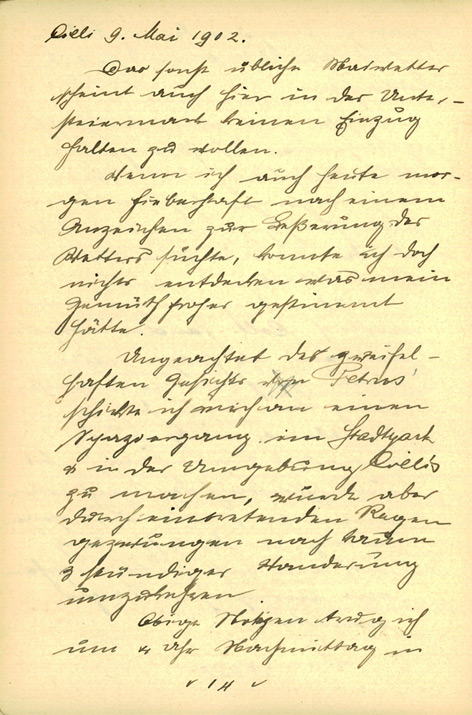 Cilli 9. Mai 1902.
Das sonst übliche Maiwetter
scheint auch hier in der Unter-
steiermark keinen Einzug
halten zu wollen.
Wenn ich auch heute mor-
gen fieberhaft nach einem
Anzeichen zur Beßerung des
Wetters suchte, konnte ich doch
nichts entdecken was mein
Gemüth froher gestimmt
hätte.
Ungeachtet des zweifel-
haften Gesichts Petrus'
schickte ich mich an einen
Spaziergang im Stadtpark
& in der Umgebung Cilli's
zu machen, wurde aber
durch eintretenden Regen
gezwungen nach kaum
3 stündiger Wanderung
umzukehren.
Obige Notizen trug ich
um 4 Uhr Nachmittag in
14